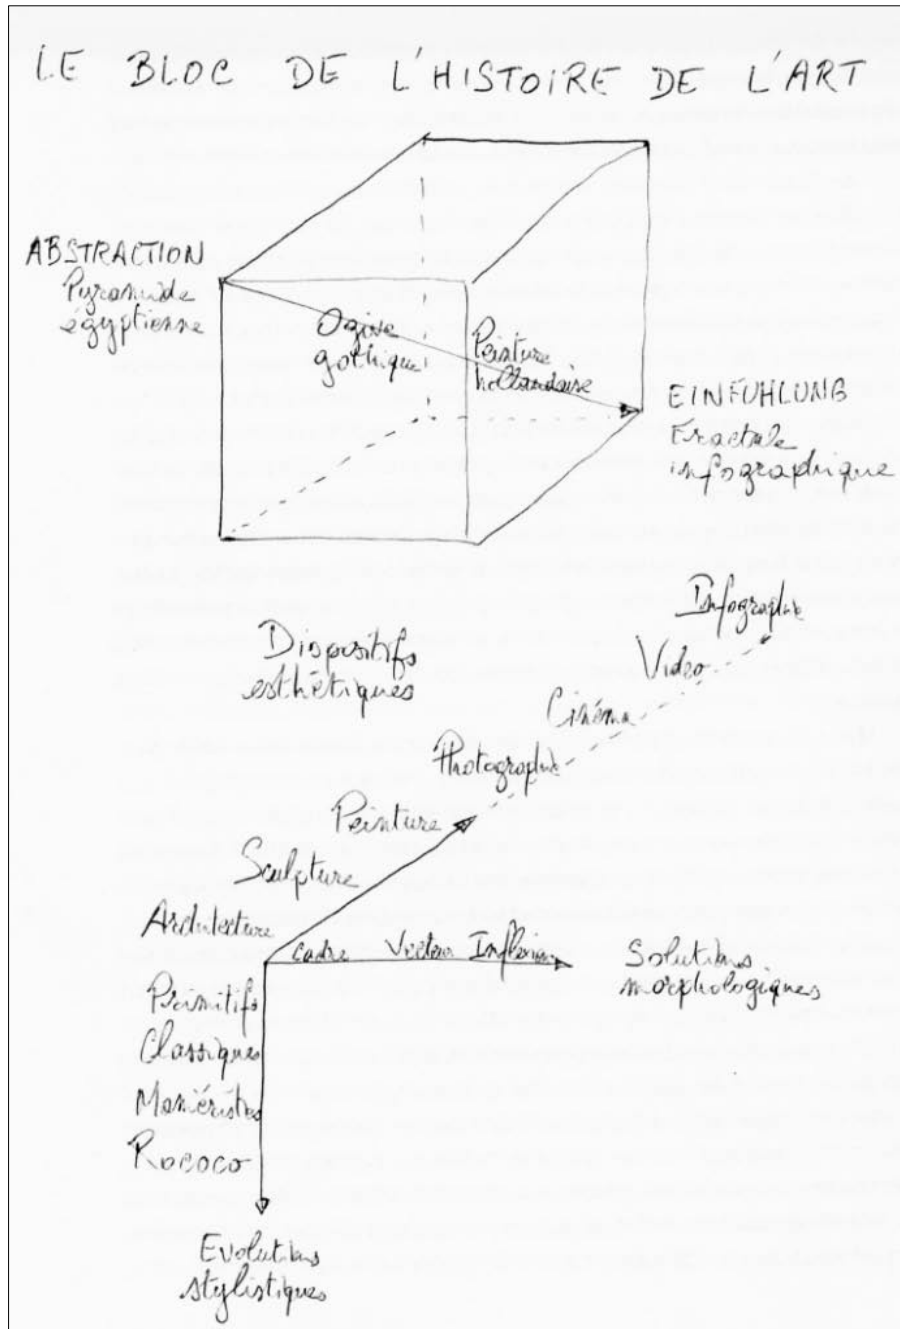 LE BLOC DE L'HISTOIRE DE L'ART
ABSTRACTION
Pyramide
égyptienne
Ogive
gothique
Peinture
hollandaise
EINFUHLUNG
Fractale
infographique
Dispositifs
esthétiques
Infographie
Vidéo
Cinéma
Photographie
Peinture
Sculpture
Architecture
Cadre Vecteur Inflexion
Solutions
morphologiques
Primitifs
Classiques
Maniéristes
Rococo
Evolutions
stylistiques